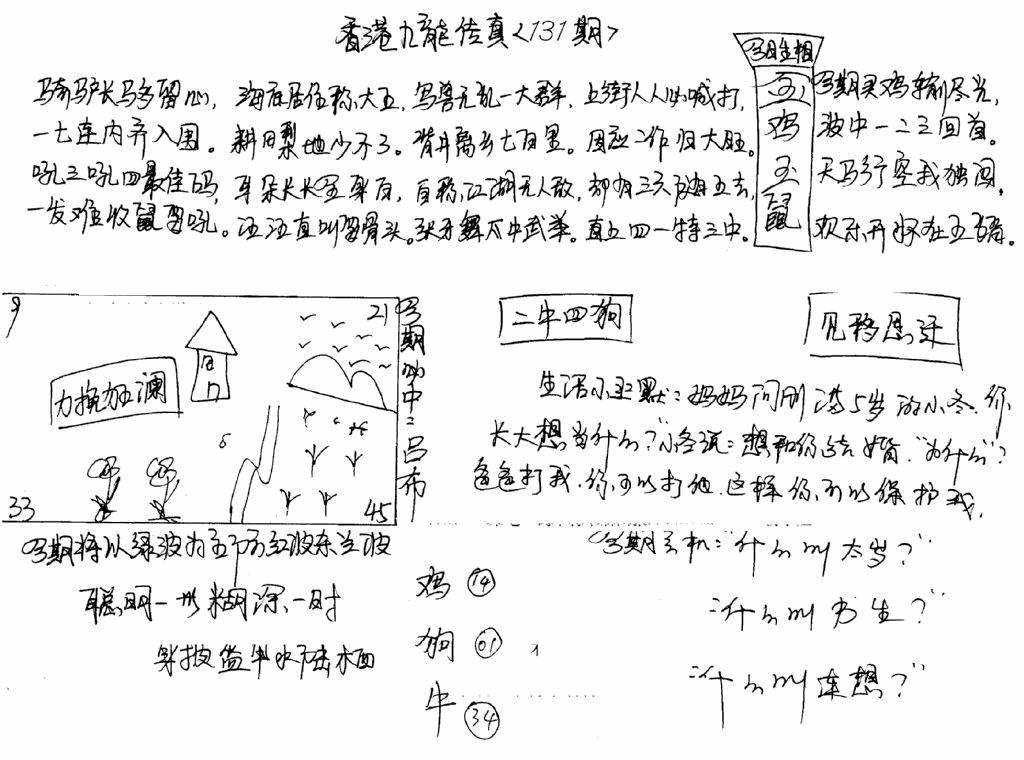 香港九龍传真<131期>
今日生相
鸡
鼠
骑驴长马多留心，海底居住称大五，鸟兽无乱一大群，上街人人必喊打，
一七连内齐入围。耕田犁地少不了。背井离乡七百里。因应工作归大旺。
吼三吼四最佳码，耳朵长长罢身百，自称江湖无人敌，却有三六海五去，
一发难收鼠图吼。汪汪直叫留骨头。张牙舞爪中武举。直五四一特三中。
今期灵鸡输尽光，
波中一二三回首。
天马行空我独闯，
欢乐开怀在五
9
21
33
45
力挽加澜
今期必中：吕布
二牛四狗
见移思迁
生活小幽默：妈妈问刚满5岁的小冬，你
长大想当什么？"小冬说：想和你结婚."为什么"？
爸爸打我.你可以打他.这样你.可以保护我.
今期将以绿波为主防红波杀兰波
聪明一世糊涂一时
鸡 14
狗 01
牛 34
今期玄机："什么叫太岁？"
"什么叫书生？"
"什么叫连想？"